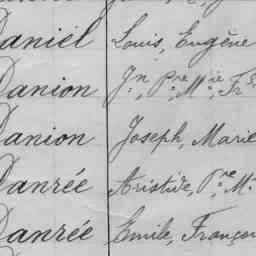 Daniel Louis, Eugène
Danion Jn, Pre Mie Frs
Danion Joseph, Marie
Danrée Aristide, Pre M.
Danrée Emile, Françoi